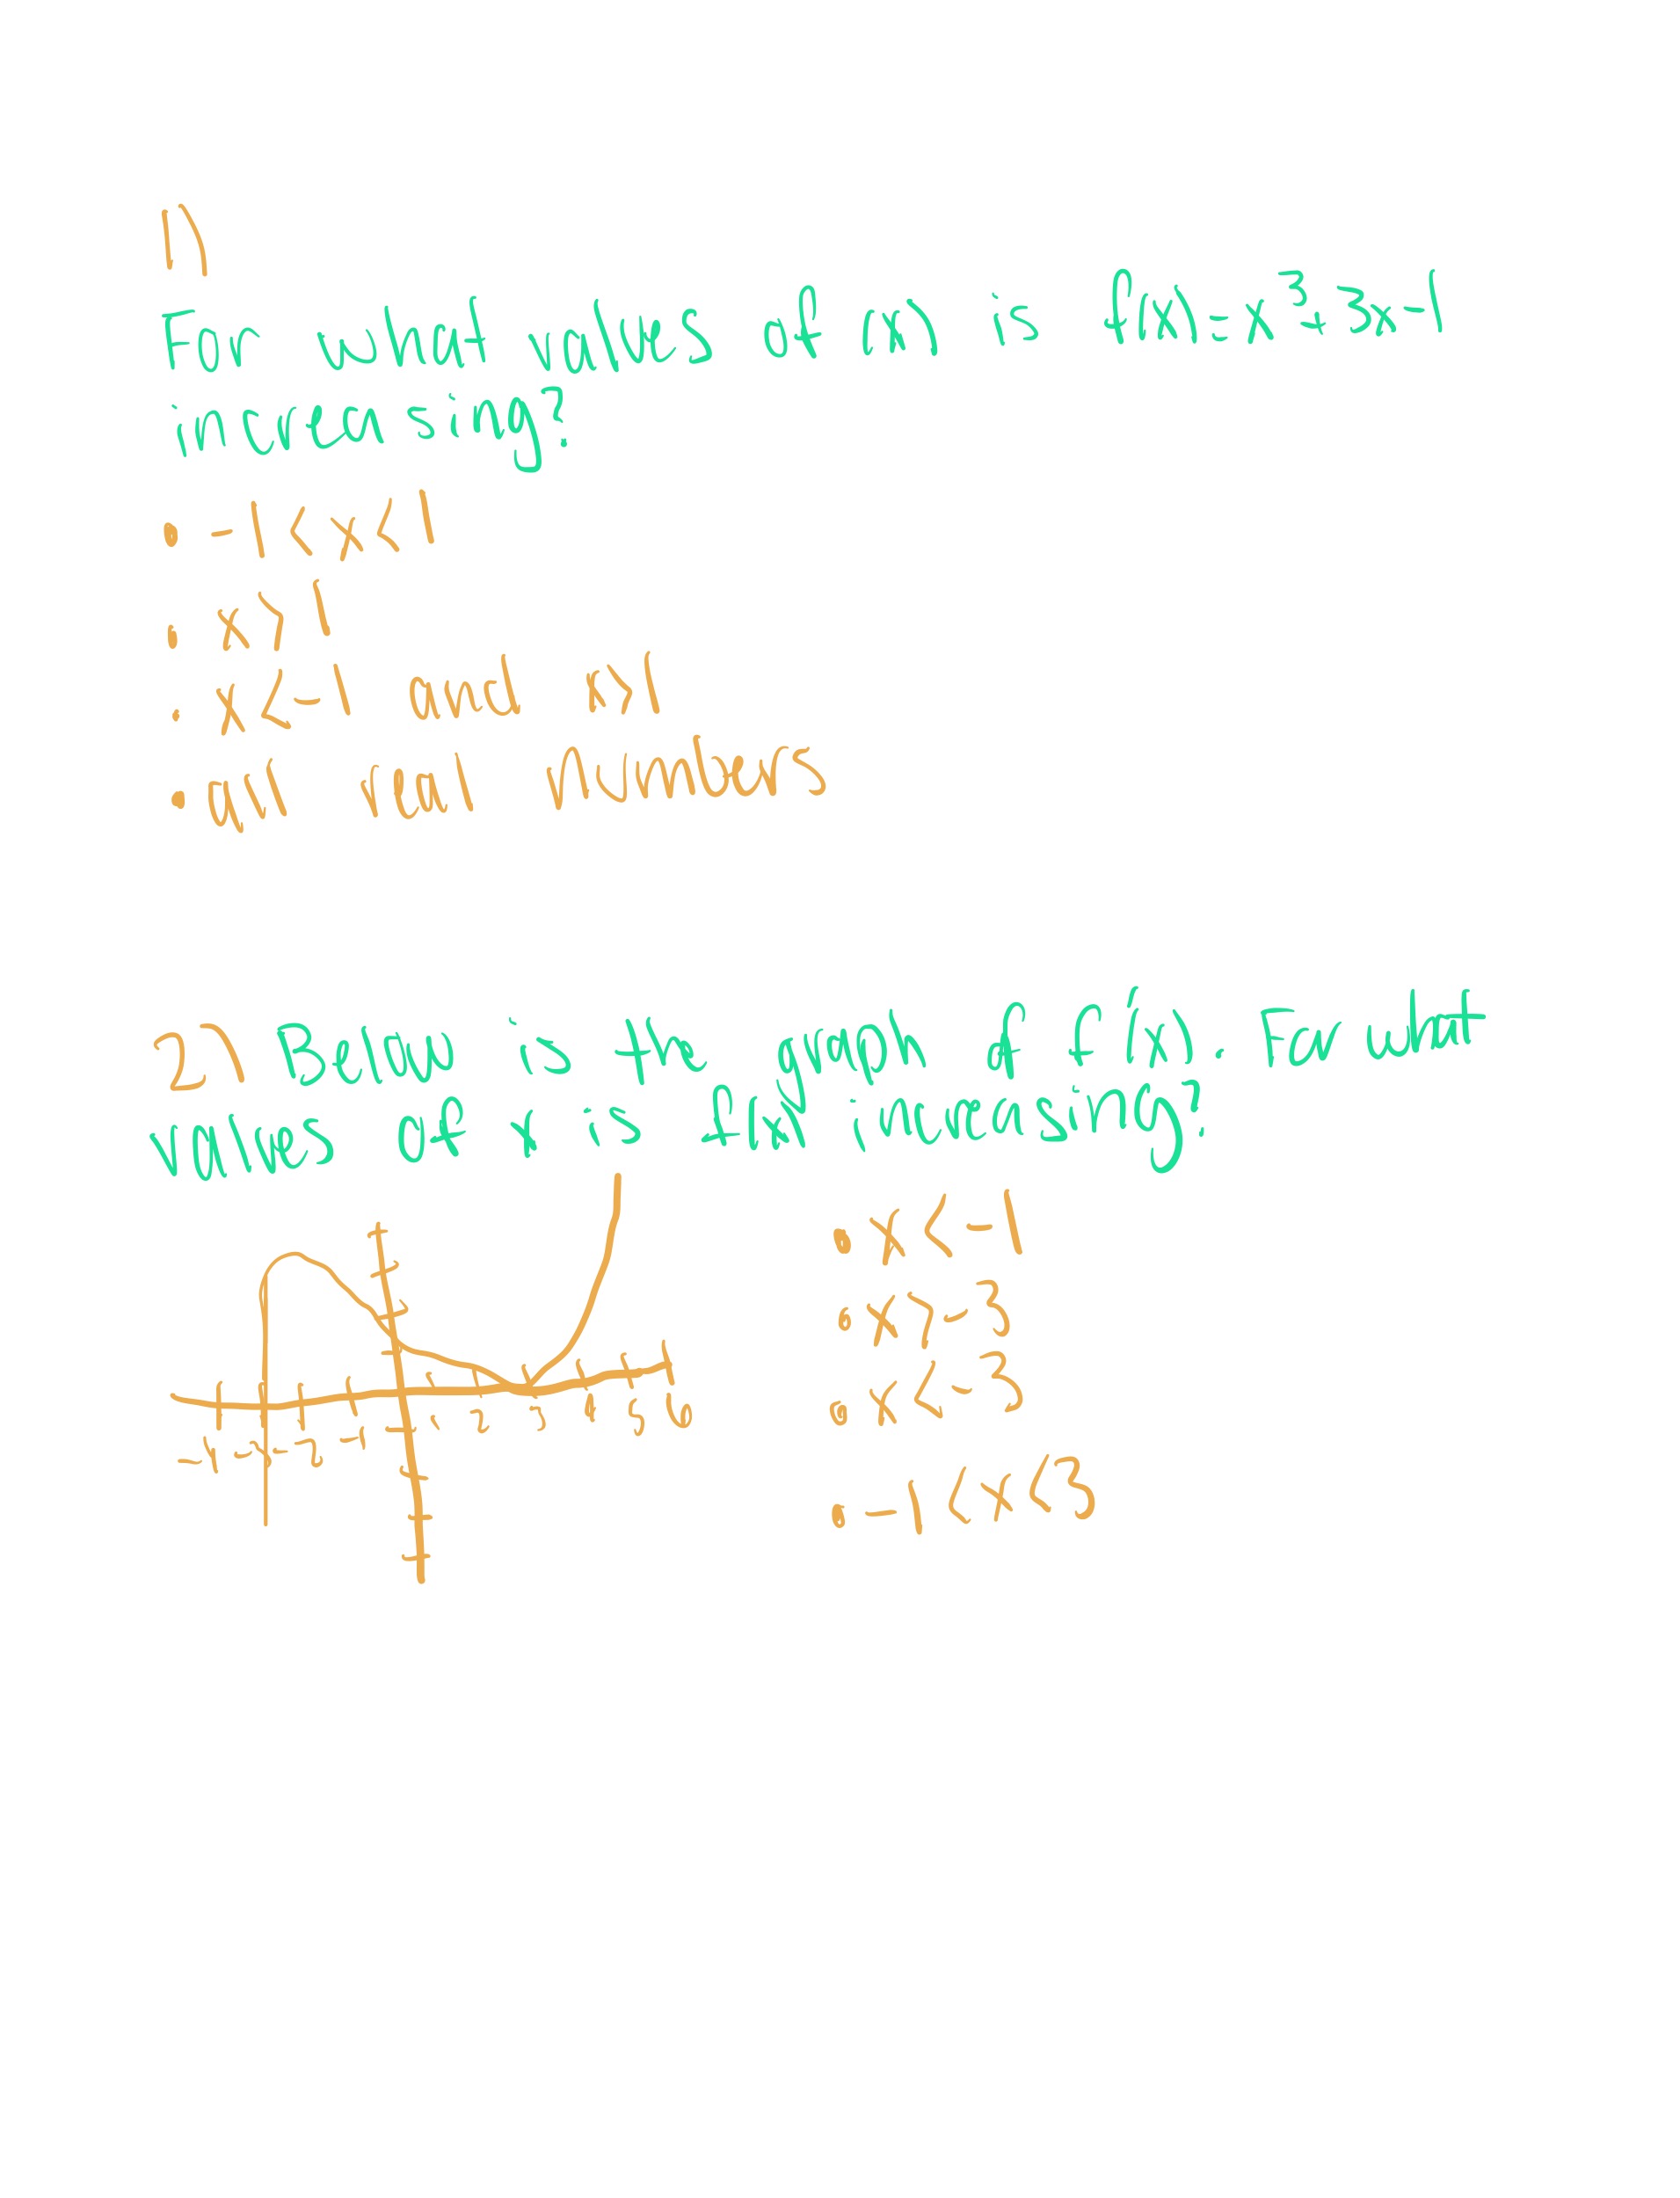 1)
For what values of (x) is f(x)=x³+3x-1
increasing?
• -1<x<1
• x>1
• x<-1 and x>1
• all real Numbers
2) Below is the graph of f'(x). For what
values of x is f(x) increasing?
• x<-1
• x>-3
• x<-3
• -1<x<3
-4 -3 -2 -1 1 2 3 4 5 6